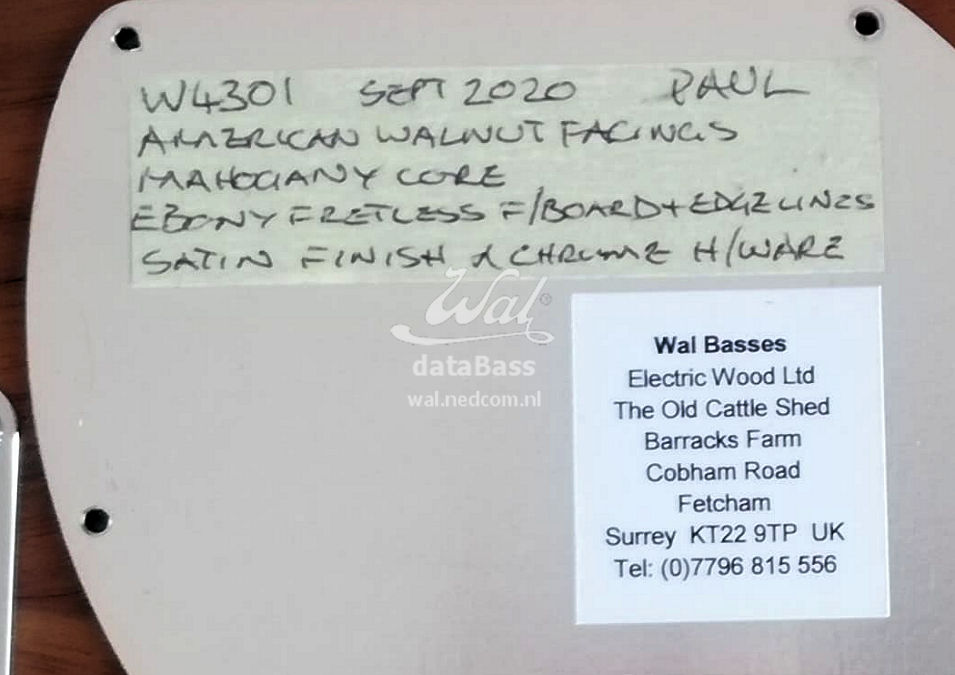 W4301 SEPT 2020 PAUL
AMERICAN WALNUT FACINGS
MAHOGANY CORE
EBONY FRETLESS F/BOARD + EDGELINES
SATIN FINISH & CHROME H/WARE
Wal®
dataBass
wal.nedcom.nl
Wal Basses
Electric Wood Ltd
The Old Cattle Shed
Barracks Farm
Cobham Road
Fetcham
Surrey KT22 9TP UK
Tel: (0)7796 815 556